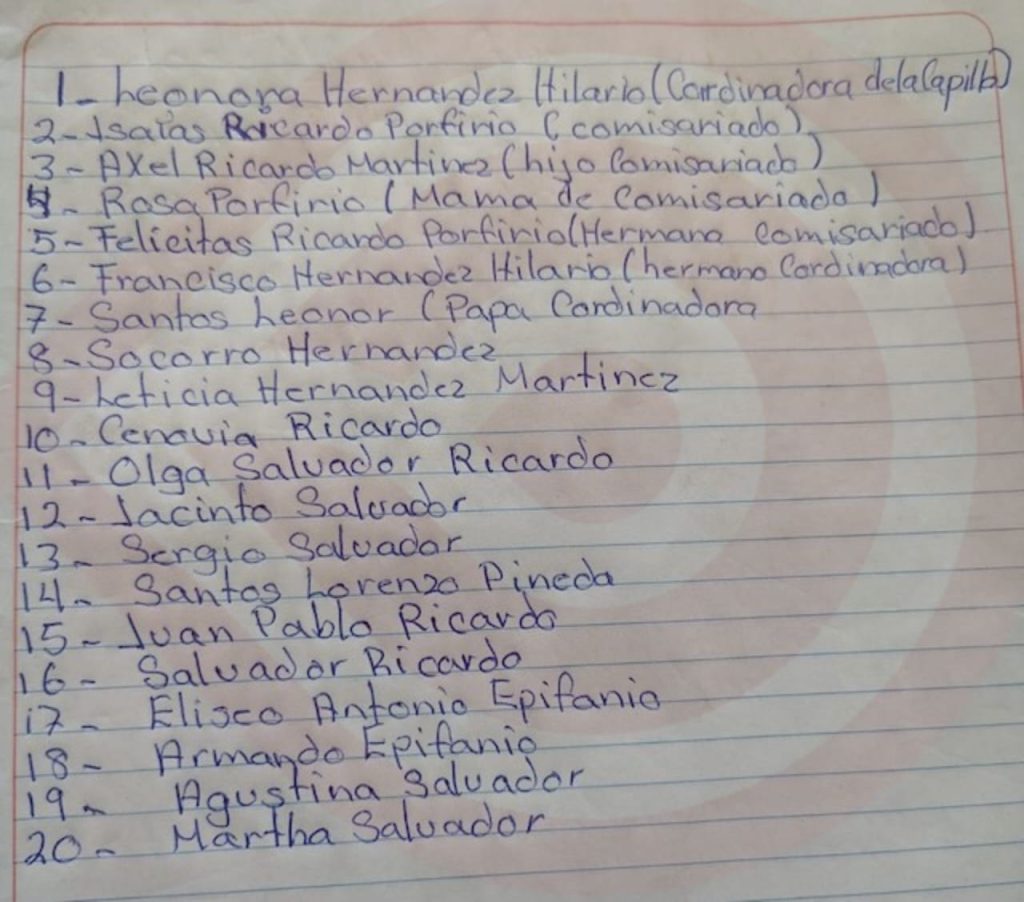 1- Leonora Hernandez Hilario (Cordinadora de la Capilla)
2- Isaías Ricardo Porfirio (comisariado)
3- Axel Ricardo Martinez (hijo Comisariado)
4- Rosa Porfirio (Mama de Comisariado)
5- Felicitas Ricardo Porfirio (Hermana Comisariado)
6- Francisco Hernandez Hilario (hermano Cordinadora)
7- Santos Leonor (Papa Cordinadora
8- Socorro Hernandez
9- Leticia Hernandez Martinez
10- Cenavia Ricardo
11- Olga Salvador Ricardo
12- Jacinto Salvador
13- Sergio Salvador
14- Santos Lorenzo Pineda
15- Juan Pablo Ricardo
16- Salvador Ricardo
17- Eliseo Antonio Epifanio
18- Armando Epifanio
19- Agustina Salvador
20- Martha Salvador